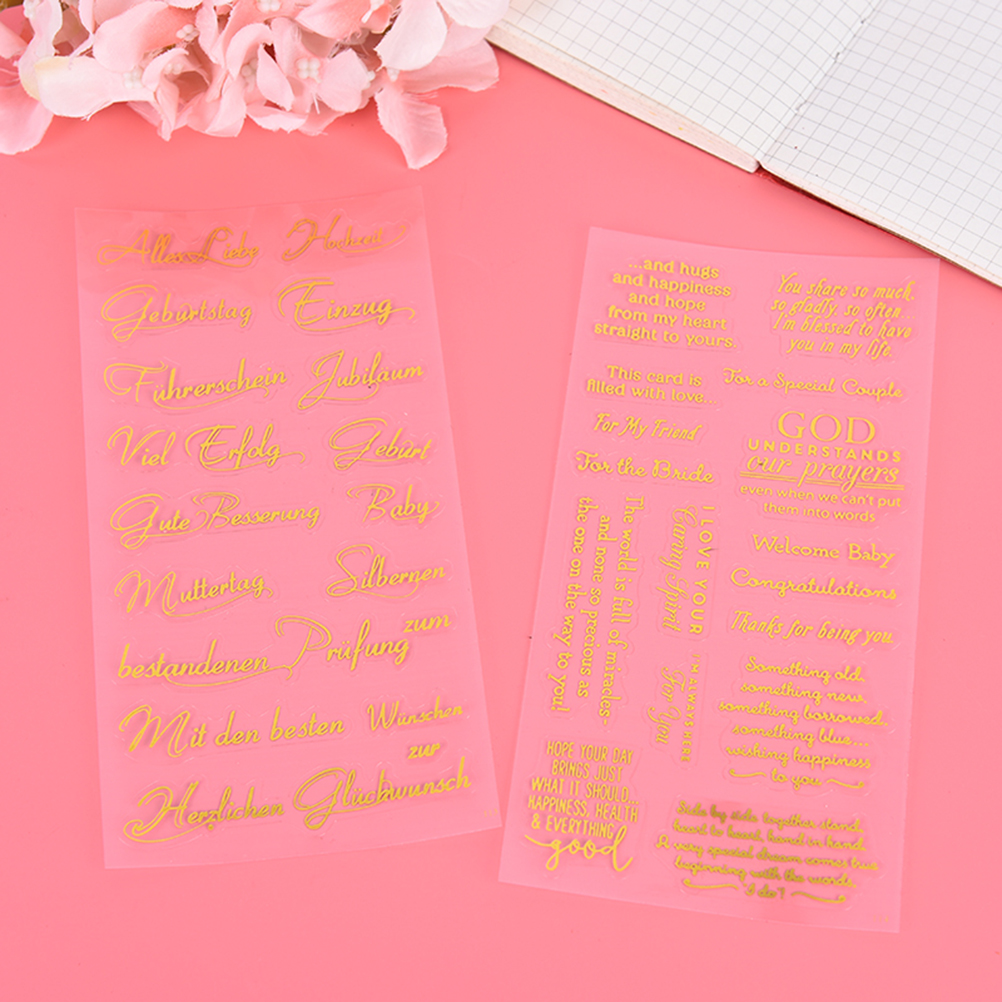 Alles Liebe
Hochzeit
Geburtstag
Einzug
Führerschein
Jubiläum
Viel Erfolg
Geburt
Gute Besserung
Baby
Muttertag
Silbernen
zum
bestandenen Prüfung
Mit den besten
Wünschen
zur
Herzlichen Glückwunsch
...and hugs
and happiness
and hope
from my heart
straight to yours.
You share so much,
so gladly, so often...
I'm blessed to have
you in my life.
This card is
filled with love...
For a Special Couple
For My Friend
GOD
UNDERSTANDS
our prayers
even when we can't put
them into words
For the Bride
The world is full of miracles-
and none so precious as
the one on the way to you!
I LOVE YOUR
Spirit
I'M ALWAYS HERE
For You
Welcome Baby
Congratulations
Thanks for being you.
Something old,
something new,
something borrowed,
something blue...
wishing happiness
to you
HOPE YOUR DAY
BRINGS JUST
WHAT IT SHOULD...
HAPPINESS, HEALTH
& EVERYTHING
good
Side by side together stand,
heart to heart, hand in hand.
A very special dream comes true
beginning with the words,
"I do"!